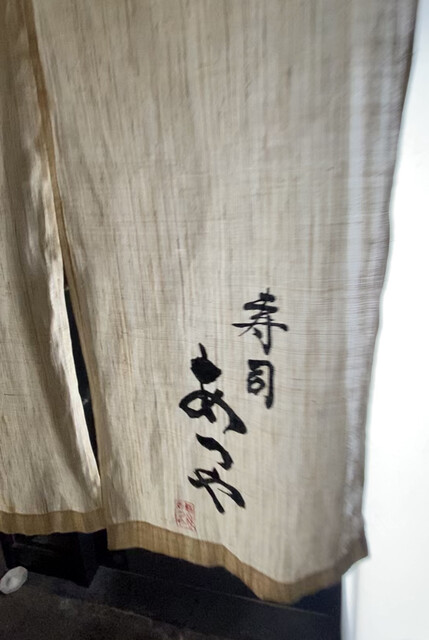 寿司
あつや